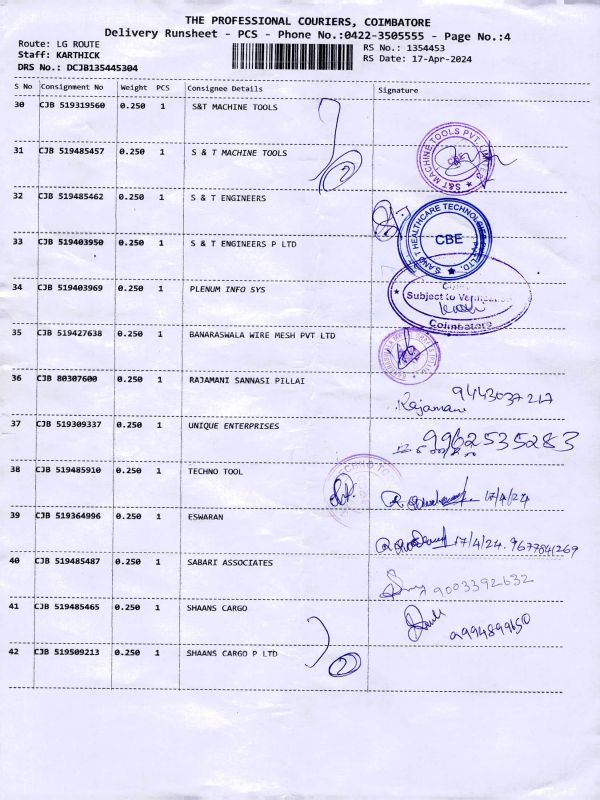 THE PROFESSIONAL COURIERS, COIMBATORE
Delivery Runsheet - PCS - Phone No.:0422-3505555 - Page No.:4
Route: LG ROUTE
RS No.: 1354453
Staff: KARTHICK
RS Date: 17-Apr-2024
DRS No.: DCJB135445304
S No Consignment No Weight PCS Consignee Details Signature
30 CJB 519319560 0.250 1 S&T MACHINE TOOLS
31 CJB 519485457 0.250 1 S & T MACHINE TOOLS
2
S&T MACHINE TOOLS PVT. LTD.
CBE
32 CJB 519485462 0.250 1 S & T ENGINEERS
S AND T HEALTHCARE TECHNOLOGIES PVT LTD.
CBE
33 CJB 519403950 0.250 1 S & T ENGINEERS P LTD
34 CJB 519403969 0.250 1 PLENUM INFO SYS
Subject to Verification
Coimbatore
35 CJB 519427638 0.250 1 BANARASWALA WIRE MESH PVT LTD
36 CJB 80307600 0.250 1 RAJAMANI SANNASI PILLAI
Rajamani 9443037217
37 CJB 519309337 0.250 1 UNIQUE ENTERPRISES
9962535283
38 CJB 519485910 0.250 1 TECHNO TOOL
17/4/24
39 CJB 519364996 0.250 1 ESWARAN
17/4/24. 9677841269
40 CJB 519485487 0.250 1 SABARI ASSOCIATES
9003392632
41 CJB 519485465 0.250 1 SHAANS CARGO
9994899650
42 CJB 519509213 0.250 1 SHAANS CARGO P LTD
2